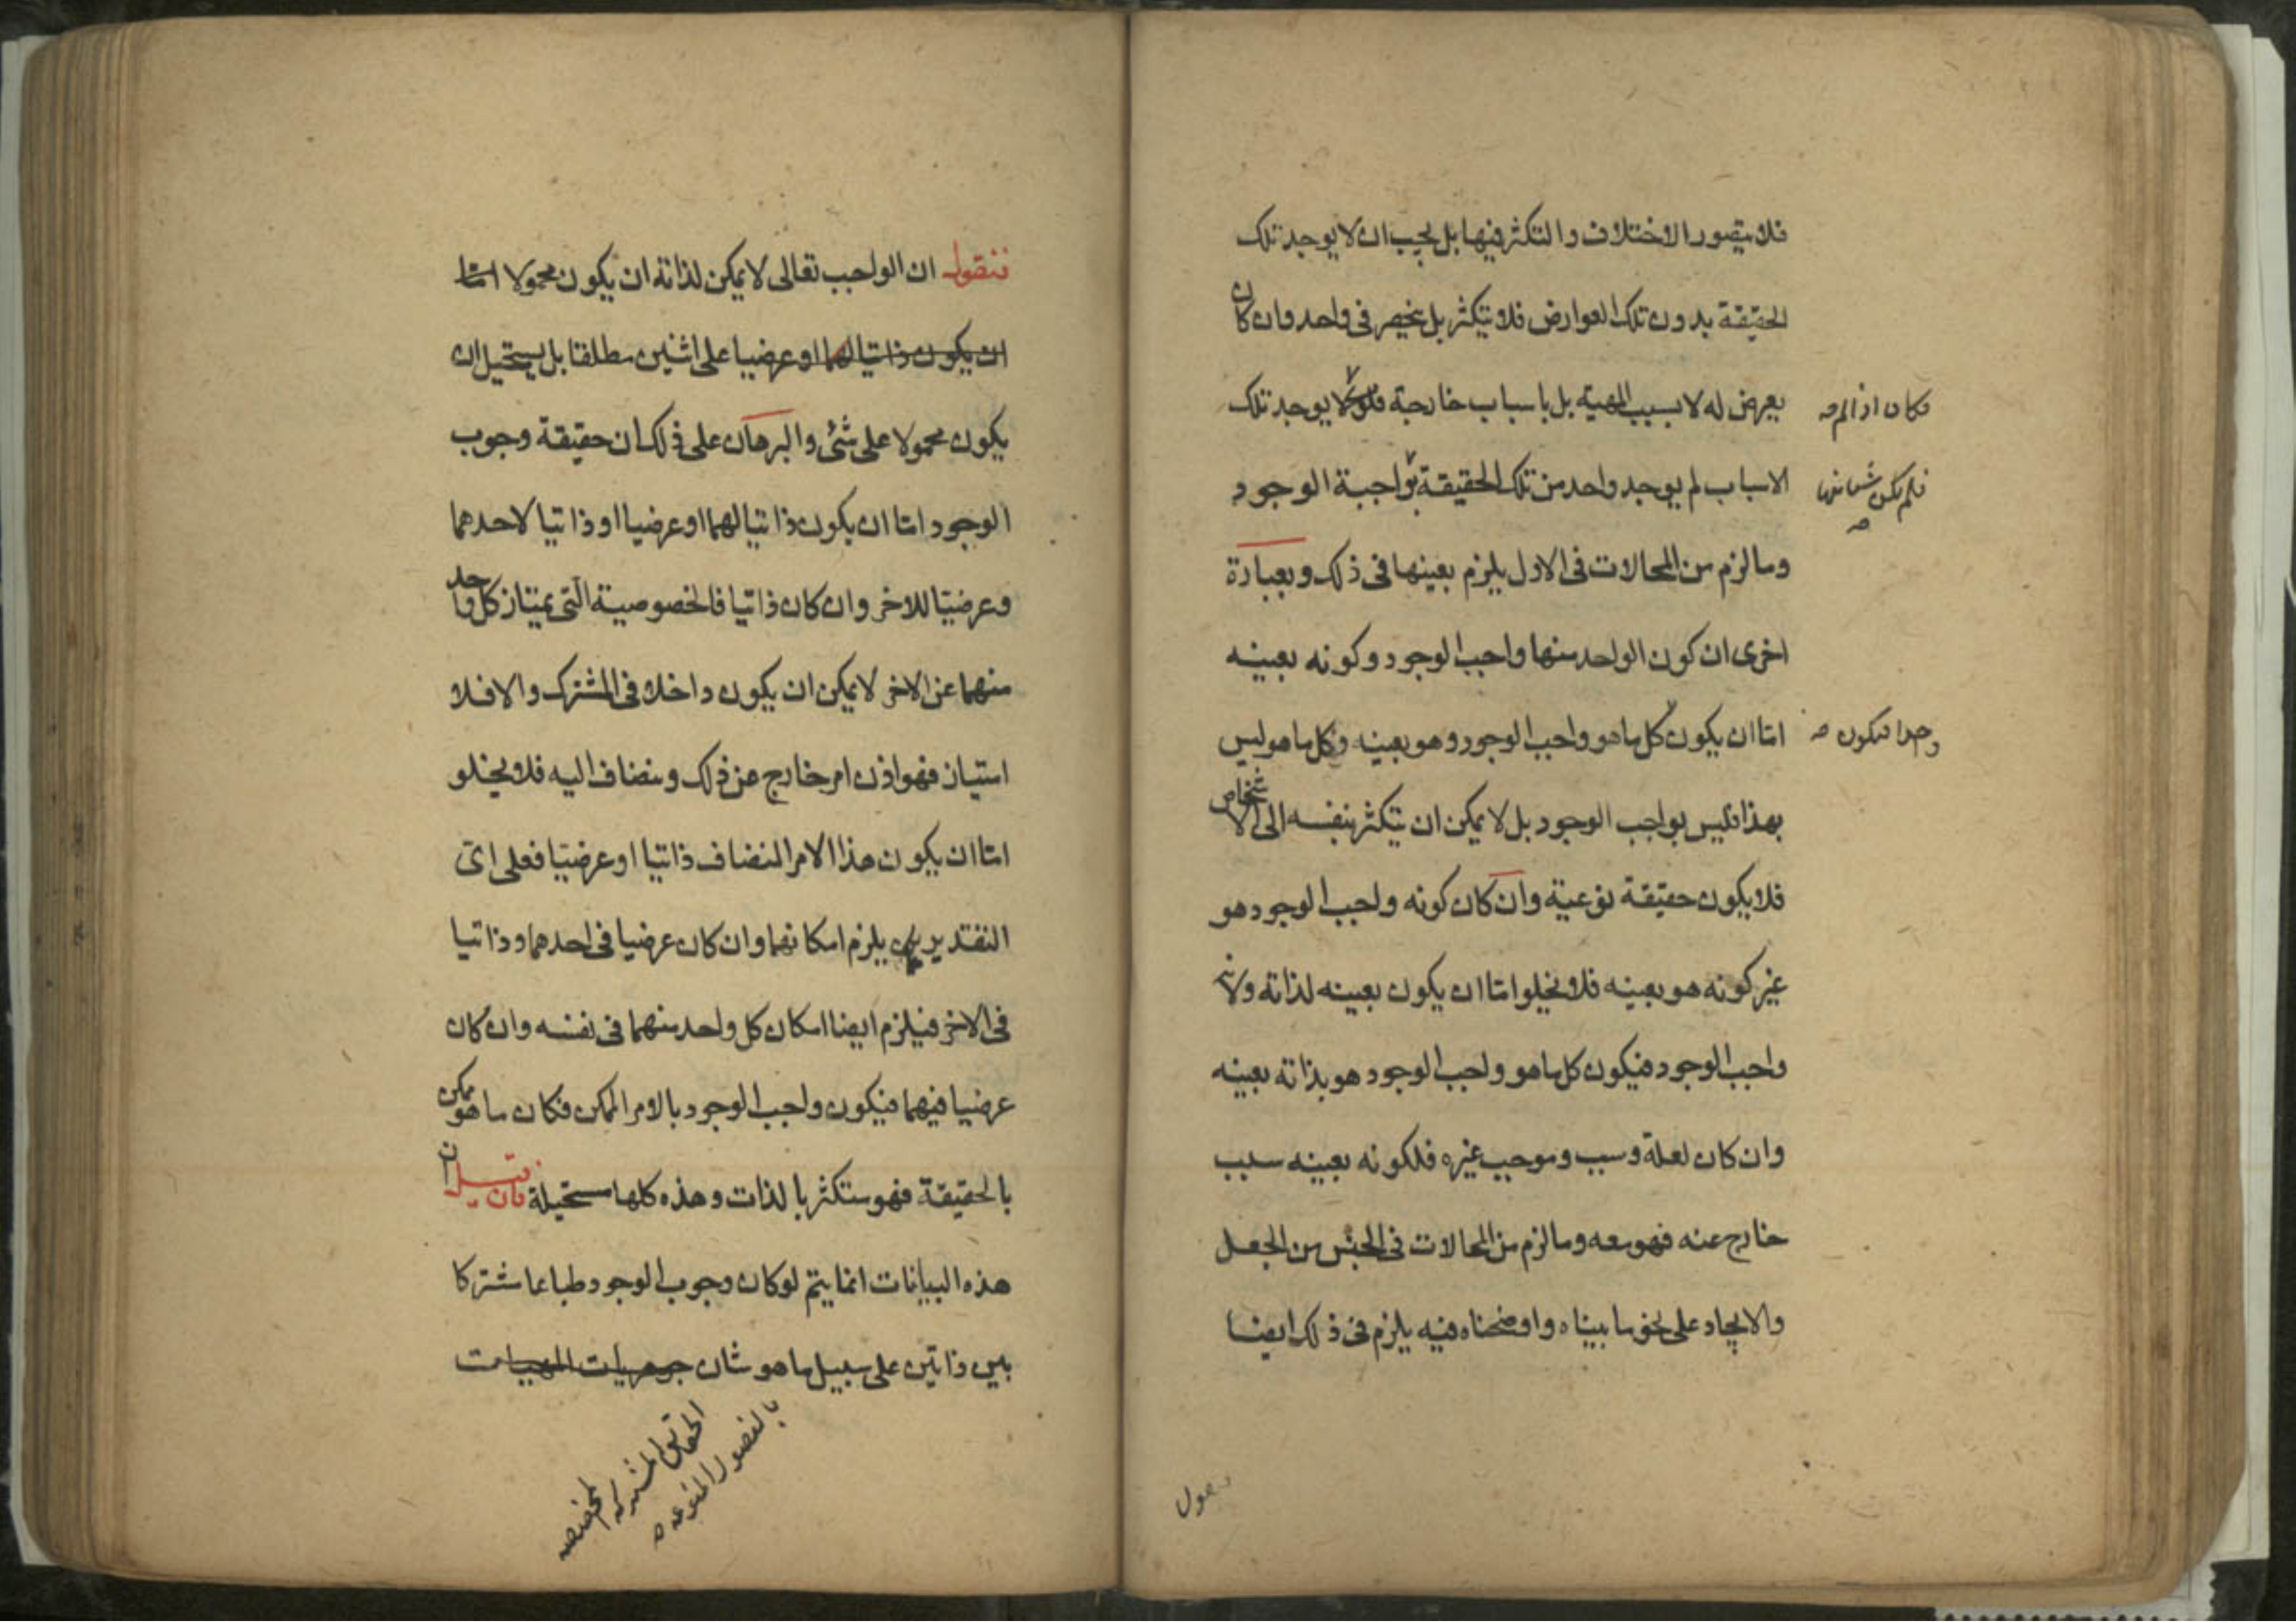 فلا يتصور الاختلاف والتكثر فيها بل يجب ان لا يوجد تلك
الحقيقة بدون تلك العوارض فلا يتكثر بل ينحصر فى واحد وان كان
يعرض له لا بسبب المهية بل باسباب خارجة لا يوجد تلك
فكان اذا لم صـ
الاسباب لم يوجد واحد من تلك الحقيقة بواجبة الوجود
فلم يكن شئ منها صـ
وما لزم من المحالات فى الاول يلزم بعينها فى ذلك وبعبارة
اخرى ان كون الواحد منها واجب الوجود وكونه بعينه
اما ان يكون كل ما هو واجب الوجود وهو بعينه وكل ما هو ليس
واحدا فيكون صـ
بهذا فليس بواجب الوجود بل لا يمكن ان يتكثر بنفسه الى الاشخاص
فلا يكون حقيقة نوعية وان كان كونه واجب الوجود هو
غير كونه هو بعينه فلا يخلوا اما ان يكون بعينه لذاته ولانه
واجب الوجود فيكون كل ما هو واجب الوجود هو بذاته بعينه
وان كان لعلة وسبب وموجب غيره فلكونه بعينه سبب
خارج عنه فهو معه وما لزم من المحالات فى الجنس من الجعل
والايجاد على نحو ما بيناه واوضحناه فيه يلزم فى ذلك ايضا
فنقول ان الواجب تعالى لا يمكن لذاته ان يكون محمولا اما
ان يكون ذاتيا لهما او عرضيا على اثنين مطلقا بل يستحيل ان
يكون محمولا على شئ والبرهان على ذلك ان حقيقة وجوب
الوجود اما ان يكون ذاتيا لهما او عرضيا او ذاتيا لاحدهما
وعرضيا للاخر وان كان ذاتيا فالخصوصية التى يمتاز كل واحد
منهما عن الاخر لا يمكن ان يكون داخلا فى المشترك والا فلا
امتياز فهو اذن امر خارج عن ذلك ومنضاف اليه فلا يخلو
اما ان يكون هذا الامر المنضاف ذاتيا او عرضيا فعلى اى
التقديرين يلزم امكانهما وان كان عرضيا فى احدهما وذاتيا
فى الاخر فيلزم ايضا امكان كل واحد منهما فى نفسه وان كان
عرضيا فيهما فيكون واجب الوجود بالامر الممكن فكان ما هو ممكن
بالحقيقة فهو متكثر بالذات وهذه كلها مستحيلة فان قيل ان
هذه البيانات انما يتم لو كان وجوب الوجود طباعا مشتركا
بين ذاتين على سبيل ما هو شان جوهريات المهيات
الحقايق المشتركة المخصصه
بالفصول المنوعه صـ